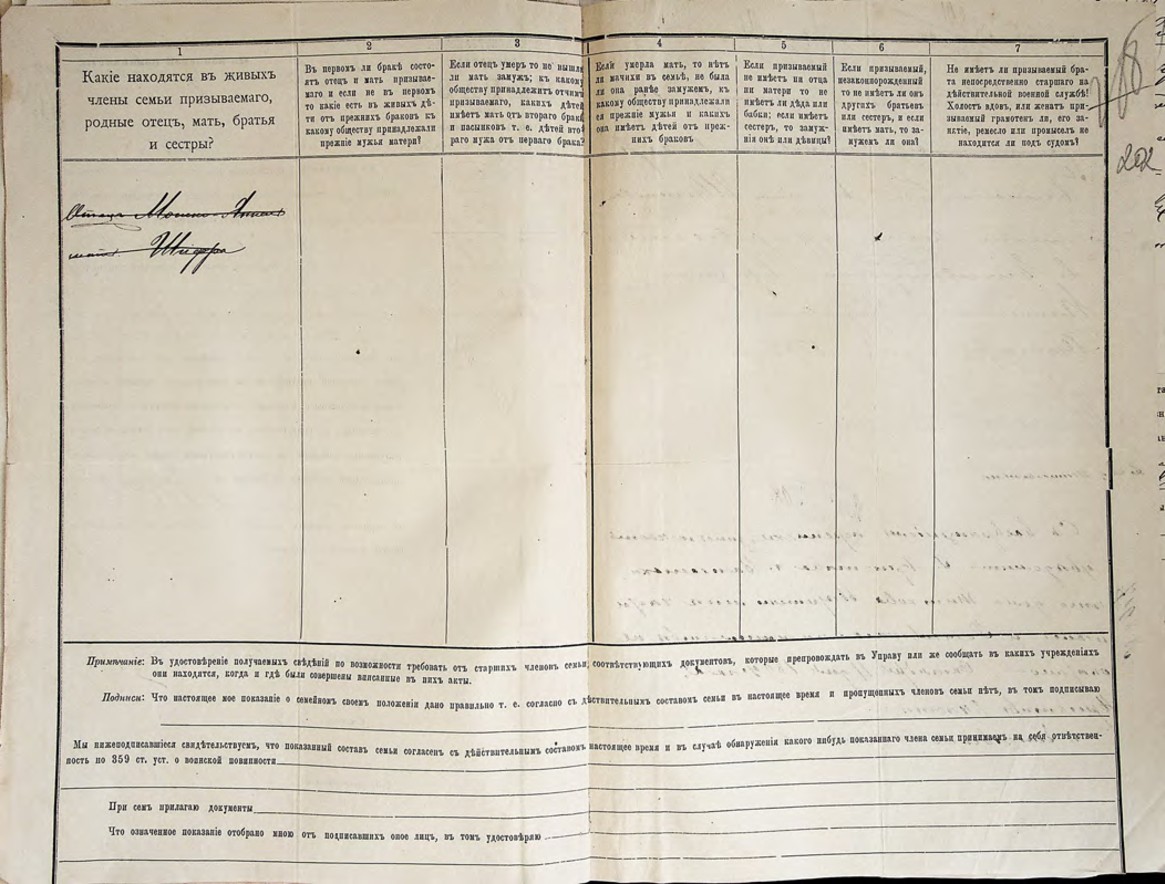 1
Какіе находятся въ живыхъ
члены семьи призываемаго,
родные отецъ, мать, братья
и сестры?
2
Въ первомъ ли бракѣ состо-
ятъ отецъ и мать призывае-
маго и если не въ первомъ
то какіе есть въ живыхъ дѣ-
ти отъ прежнихъ браковъ къ
какому обществу принадлежали
прежніе мужья матери?
3
Если отецъ умеръ то не вышла
ли мать замужъ; къ какому
обществу принадлежитъ отчимъ
призываемаго, какихъ дѣтей
имѣетъ мать отъ втораго брака
и пасынковъ т. е. дѣтей вто-
раго мужа отъ перваго брака?
4
Если умерла мать, то нѣтъ
ли мачихи въ семьѣ, не была
ли она ранѣе замужемъ, къ
какому обществу принадлежали
ея прежніе мужья и какихъ
она имѣетъ дѣтей отъ преж-
нихъ браковъ
5
Если призываемый
не имѣетъ ни отца
ни матери то не
имѣетъ ли дѣда или
бабки; если имѣетъ
сестеръ, то замуж-
нія онѣ или дѣвицы?
6
Если призываемый,
незаконнорожденный
то не имѣетъ ли онъ
другихъ братьевъ
или сестеръ, и если
имѣетъ мать, то за-
мужемъ ли она?
7
Не имѣетъ ли призываемый бра-
та непосредственно старшаго на
дѣйствительной военной службѣ?
Холостъ вдовъ, или женатъ при-
зываемый грамотенъ ли, его за-
нятіе, ремесло или промыселъ не
находится ли подъ судомъ?
202
Отецъ Мошко
мать Шифра
Примѣчаніе: Въ удостовѣреніе получаемыхъ свѣдѣній по возможности требовать отъ старшихъ членовъ семьи соотвѣтствующихъ документовъ, которые препровождать въ Управу или же сообщать въ какихъ учрежденіяхъ
они находятся, когда и гдѣ были совершены вписанные въ нихъ акты.
Подписи: Что настоящее мое показаніе о семейномъ своемъ положеніи дано правильно т. е. согласно съ дѣйствительнымъ составомъ семьи въ настоящее время и пропущенныхъ членовъ семьи нѣтъ, въ томъ подписываю
Мы нижеподписавшіеся свидѣтельствуемъ, что показанный составъ семьи согласенъ съ дѣйствительнымъ составомъ настоящее время и въ случаѣ обнаруженія какого нибудь показаннаго члена семьи принимаемъ на себя отвѣтствен-
ность по 359 ст. уст. о воинской повинности
При семъ прилагаю документы
Что означенное показаніе отобрано мною отъ подписавшихъ оное лицъ, въ томъ удостовѣряю